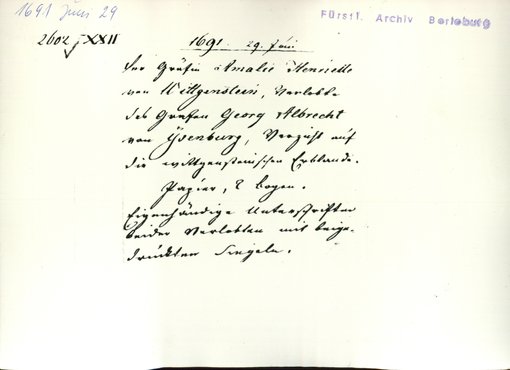 1691 Juni 29
Fürstl. Archiv Berleburg
2602 XXII
1691 29. Juni
Der Gräfin Amalie Henriette
von Wittgenstein, Verlobte
des Grafen Georg Albrecht
von Ysenburg, Verzicht auf
die wittgensteinschen Erblande.
Papier, 2 Bogen.
Eigenhändige Unterschriften
beider Verlobten mit beige-
drückten Siegeln.